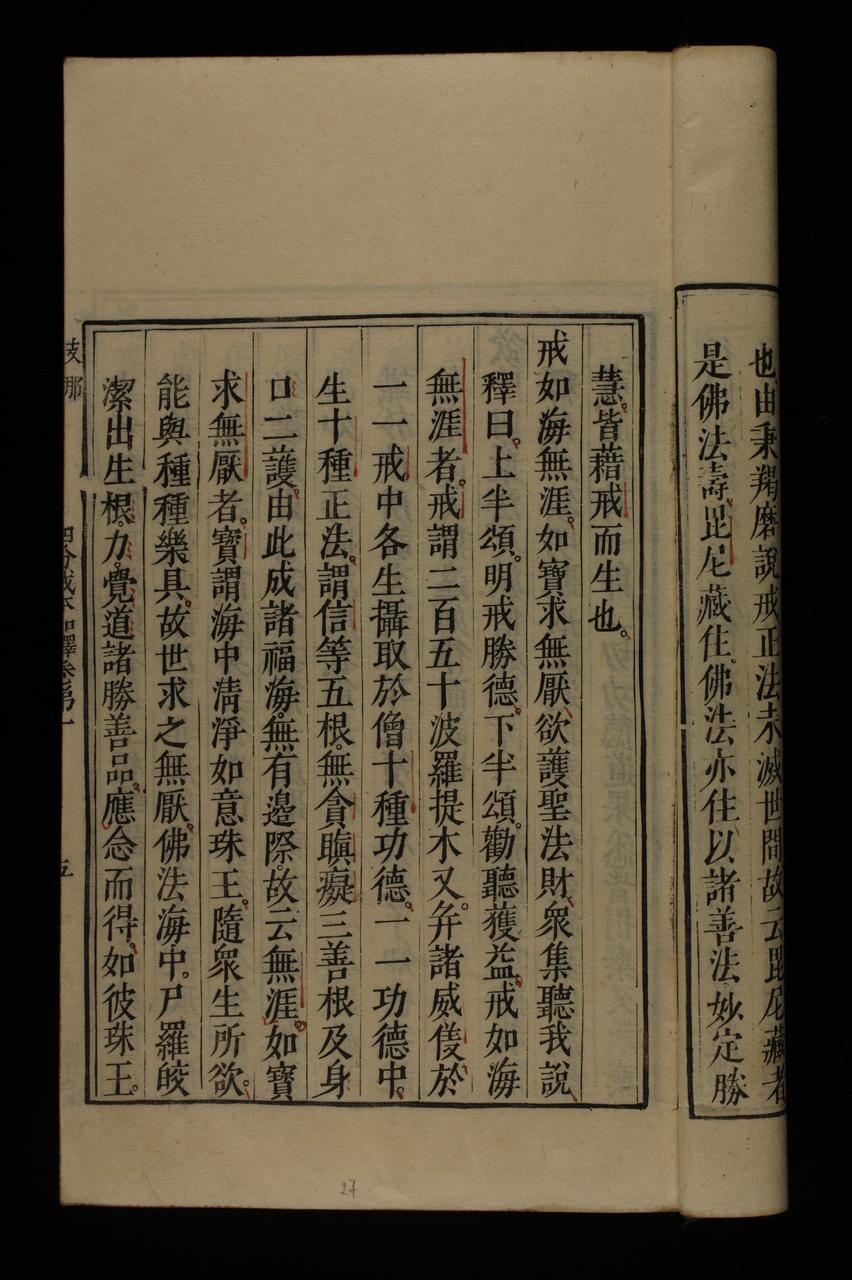 也由秉羯磨說戒正法未滅世間故云毘尼藏者
是佛法壽毘尼藏住佛法亦住以諸善法妙定勝
慧皆藉戒而生也
戒如海無涯如寶求無厭欲護聖法財衆集聽我說
釋曰上半頌明戒勝德下半頌勸聽獲益戒如海
無涯者戒謂二百五十波羅提木叉并諸威儀於
一一戒中各生攝取於僧十種功德一一功德中
生十種正法謂信等五根無貪瞋癡三善根及身
口二護由此成諸福海無有邊際故云無涯如寶
求無厭者寶謂海中清淨如意珠王隨衆生所欲
能與種種樂具故世求之無厭佛法海中尸羅皎
潔出生根力覺道諸勝善品應念而得如彼珠王
支那
四分戒本如釋卷第一
五
27